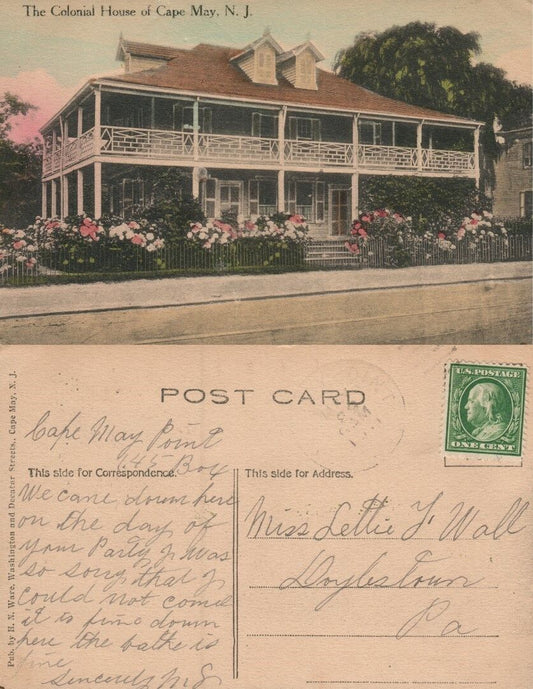 The Colonial House of Cape May, N. J.
POST CARD
U.S. POSTAGE
ONE CENT
Cape May Point
45 Box
This side for Correspondence.
We came down here
on the day of
your Party I was
so sorry that I
could not come
it is fine down
here the bathe is
fine
Sincerely
This side for Address.
Miss Lettie F Wall
Doylestown
Pa
Pub. by H. N. Ware, Washington and Decatur Streets, Cape May, N. J.